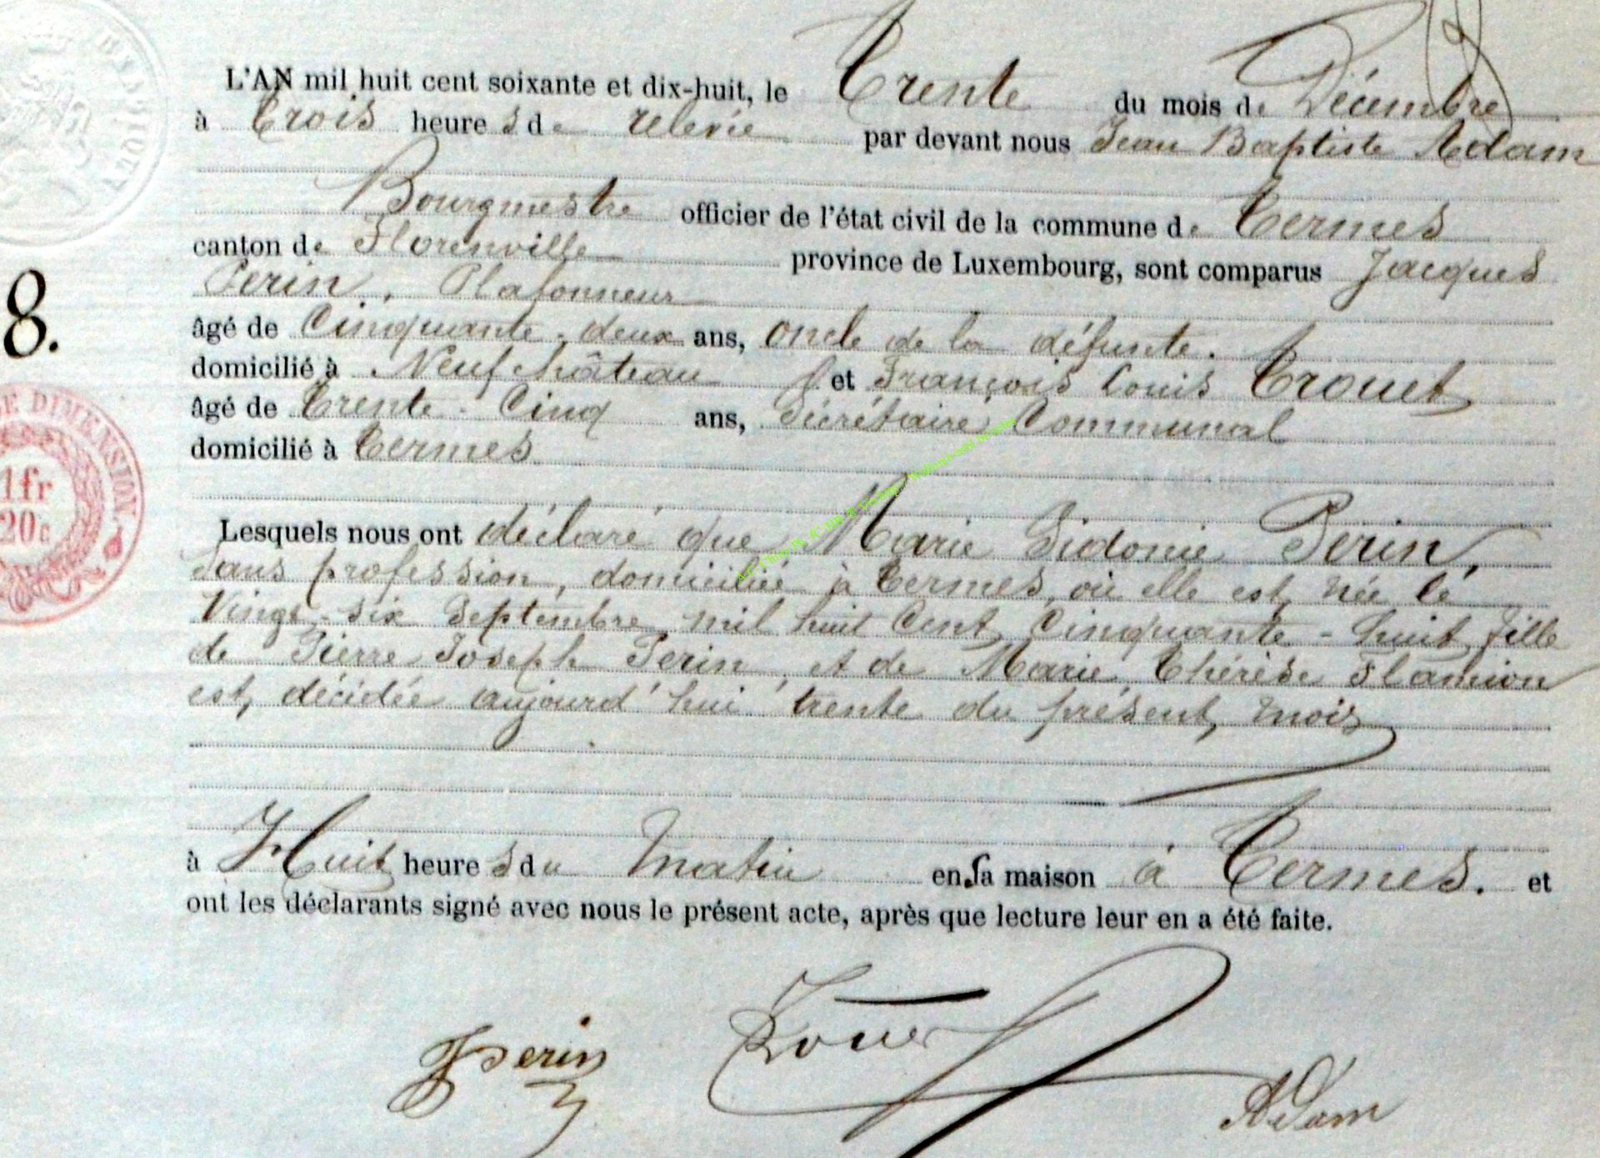 L'AN mil huit cent soixante et dix-huit, le Trente du mois de Décembre
à Trois heures de relevée par devant nous Jean Baptiste Adam
Bourgmestre officier de l'état civil de la commune de Termes
canton de Florenville province de Luxembourg, sont comparus Jacques
Perin, Plafonneur
âgé de Cinquante-deux ans, oncle de la défunte.
domicilié à Neufchâteau et François Louis Trouet
âgé de Trente-Cinq ans, Sécrétaire Communal
domicilié à Termes
8.
E DIMENSION
1fr
20c
Lesquels nous ont déclaré que Marie Sidonie Perin,
Sans profession, domiciliée à Termes, où elle est née le
Vingt-six Septembre mil huit Cent Cinquante-huit, fille
de Pierre Joseph Perin, et de Marie Thérèse Slamion
est, décédée aujourd'hui trente du présent mois
à Huit heures du Matin en sa maison à Termes. et
ont les déclarants signé avec nous le présent acte, après que lecture leur en a été faite.
JPerin Trouet Adam